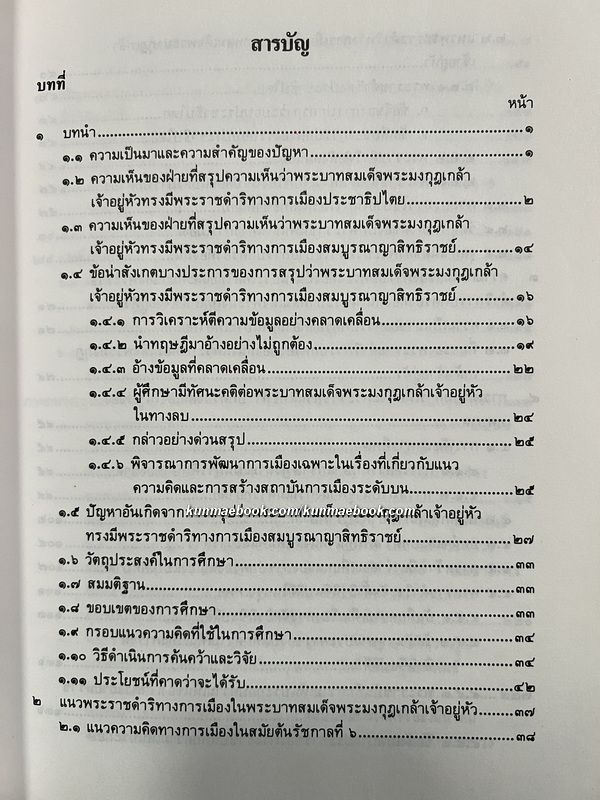 สารบัญ
บทที่
หน้า
๑ บทนำ ๑
๑.๑ ความเป็นมาและความสำคัญของปัญหา ๑
๑.๒ ความเห็นของฝ่ายที่สรุปความเห็นว่าพระบาทสมเด็จพระมงกุฎเกล้า
เจ้าอยู่หัวทรงมีพระราชดำริทางการเมืองประชาธิปไตย ๒
๑.๓ ความเห็นของฝ่ายที่สรุปความเห็นว่าพระบาทสมเด็จพระมงกุฎเกล้า
เจ้าอยู่หัวทรงมีพระราชดำริทางการเมืองสมบูรณาญาสิทธิราชย์ ๑๔
๑.๔ ข้อน่าสังเกตบางประการของการสรุปว่าพระบาทสมเด็จพระมงกุฎเกล้า
เจ้าอยู่หัวทรงมีพระราชดำริทางการเมืองสมบูรณาญาสิทธิราชย์ ๑๖
๑.๔.๑ การวิเคราะห์ตีความข้อมูลอย่างคลาดเคลื่อน ๑๖
๑.๔.๒ นำทฤษฎีมาอ้างอย่างไม่ถูกต้อง ๑๙
๑.๔.๓ อ้างข้อมูลที่คลาดเคลื่อน ๒๒
๑.๔.๔ ผู้ศึกษามีทัศนะคติต่อพระบาทสมเด็จพระมงกุฎเกล้าเจ้าอยู่หัว
ในทางลบ ๒๔
๑.๔.๕ กล่าวอย่างด่วนสรุป ๒๕
๑.๔.๖ พิจารณาการพัฒนาการเมืองเฉพาะในเรื่องที่เกี่ยวกับแนว
ความคิดและการสร้างสถาบันการเมืองระดับบน ๒๕
๑.๕ ปัญหาอันเกิดจาก มงกุฎเกล้าเจ้าอยู่หัว
kunmaebook.com/kunmaebook.com
ทรงมีพระราชดำริทางการเมืองสมบูรณาญาสิทธิราชย์ ๒๗
๑.๖ วัตถุประสงค์ในการศึกษา ๓๓
๑.๗ สมมติฐาน ๓๓
๑.๘ ขอบเขตของการศึกษา ๓๓
๑.๙ กรอบแนวความคิดที่ใช้ในการศึกษา ๓๔
๑.๑๐ วิธีดำเนินการค้นคว้าและวิจัย ๓๔
๑.๑๑ ประโยชน์ที่คาดว่าจะได้รับ ๔๒
๒ แนวพระราชดำริทางการเมืองในพระบาทสมเด็จพระมงกุฎเกล้าเจ้าอยู่หัว ๓๗
๒.๑ แนวความคิดทางการเมืองในสมัยต้นรัชกาลที่ ๖ ๓๘